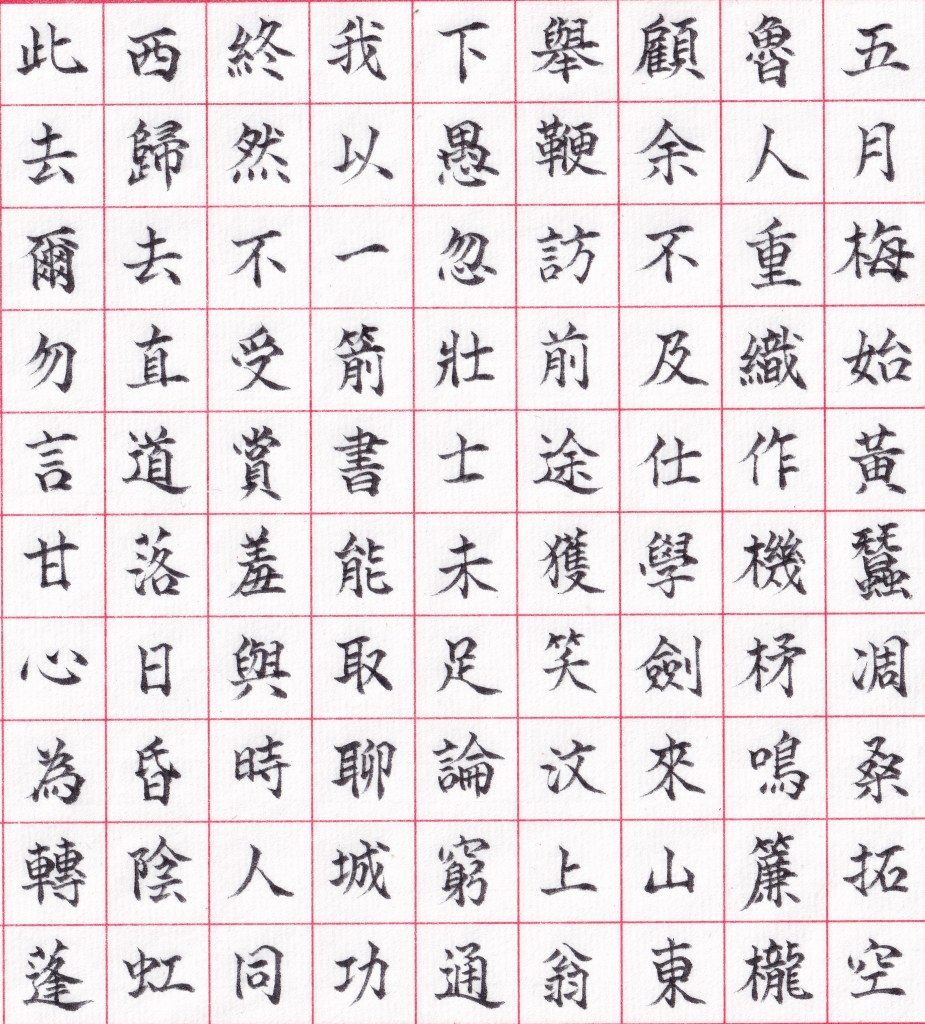 五月梅始黃蠶凋桑拓空
魯人重織作機杼鳴簾櫳
顧余不及仕學劍來山東
舉鞭訪前途獲笑汶上翁
下愚忽壯士未足論窮通
我以一箭書能取聊城功
終然不受賞羞與時人同
西歸去直道落日昏陰虹
此去爾勿言甘心為轉蓬